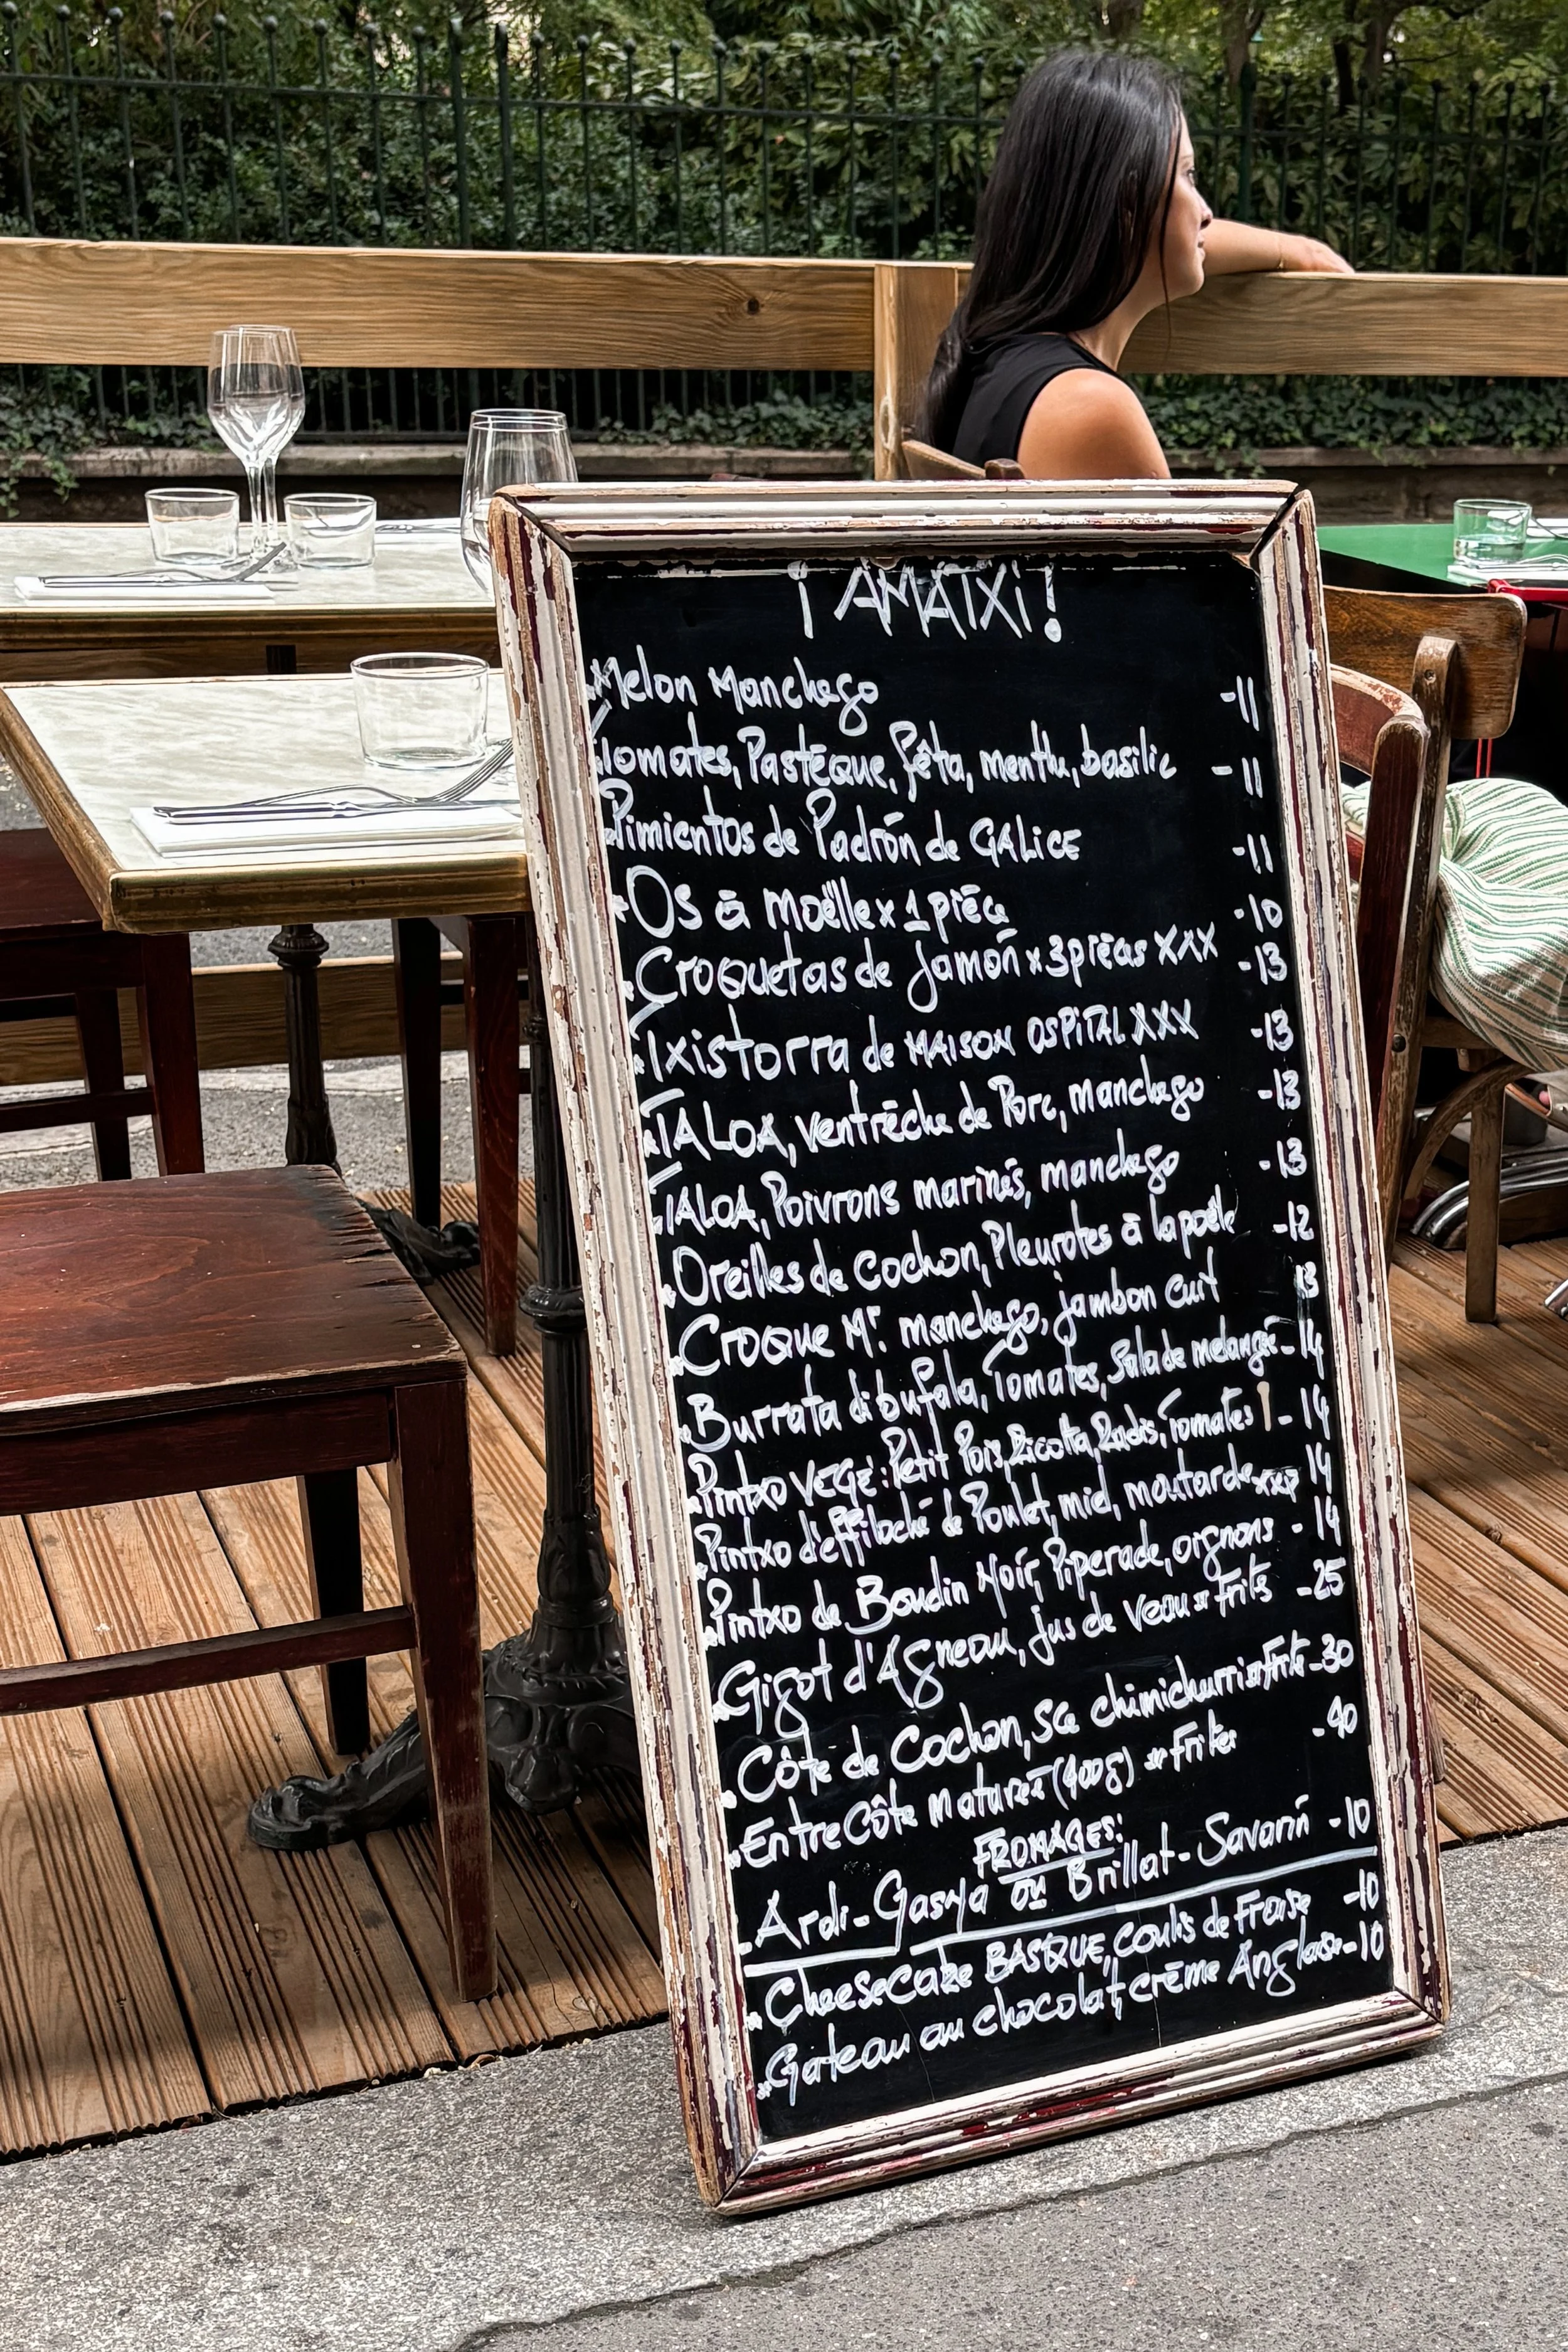 ¡AMATXI!
Melon Manchego -11
Tomates, Pastèque, fêta, menthe, basilic -11
Pimientos de Padrón de GALICE -11
Os à Moëlle x 1 pièce -10
Croquetas de Jamón x 3 pièces XXX -13
Txistorra de MAISON OSPITAL XXX -13
TALOA, ventrèche de Porc, manchego -13
TALOA, Poivrons marinés, manchego -13
Oreilles de Cochon, Pleurotes à la poêle -12
Croque Mr. manchego, jambon cuit 13
Burrata di bufala, Tomates, Salade melangé -14
Pintxo VEGE: Petit Pois, Ricotta, Radis, Tomates -14
Pintxo d'effiloché de Poulet, miel, moutarde xxx 14
Pintxo de Boudin Noir, Piperade, oignons -14
Gigot d'Agneau, jus de veau Frites -25
Côte de Cochon, Sce chimichurri Frites -30
EntreCôte Maturée (400g) Frites -40
FROMAGES:
Ardi-Gasna ou Brillat-Savarin -10
Cheesecake BASQUE, Coulis de Fraise -10
Gâteau au chocolat, crème Anglaise -10